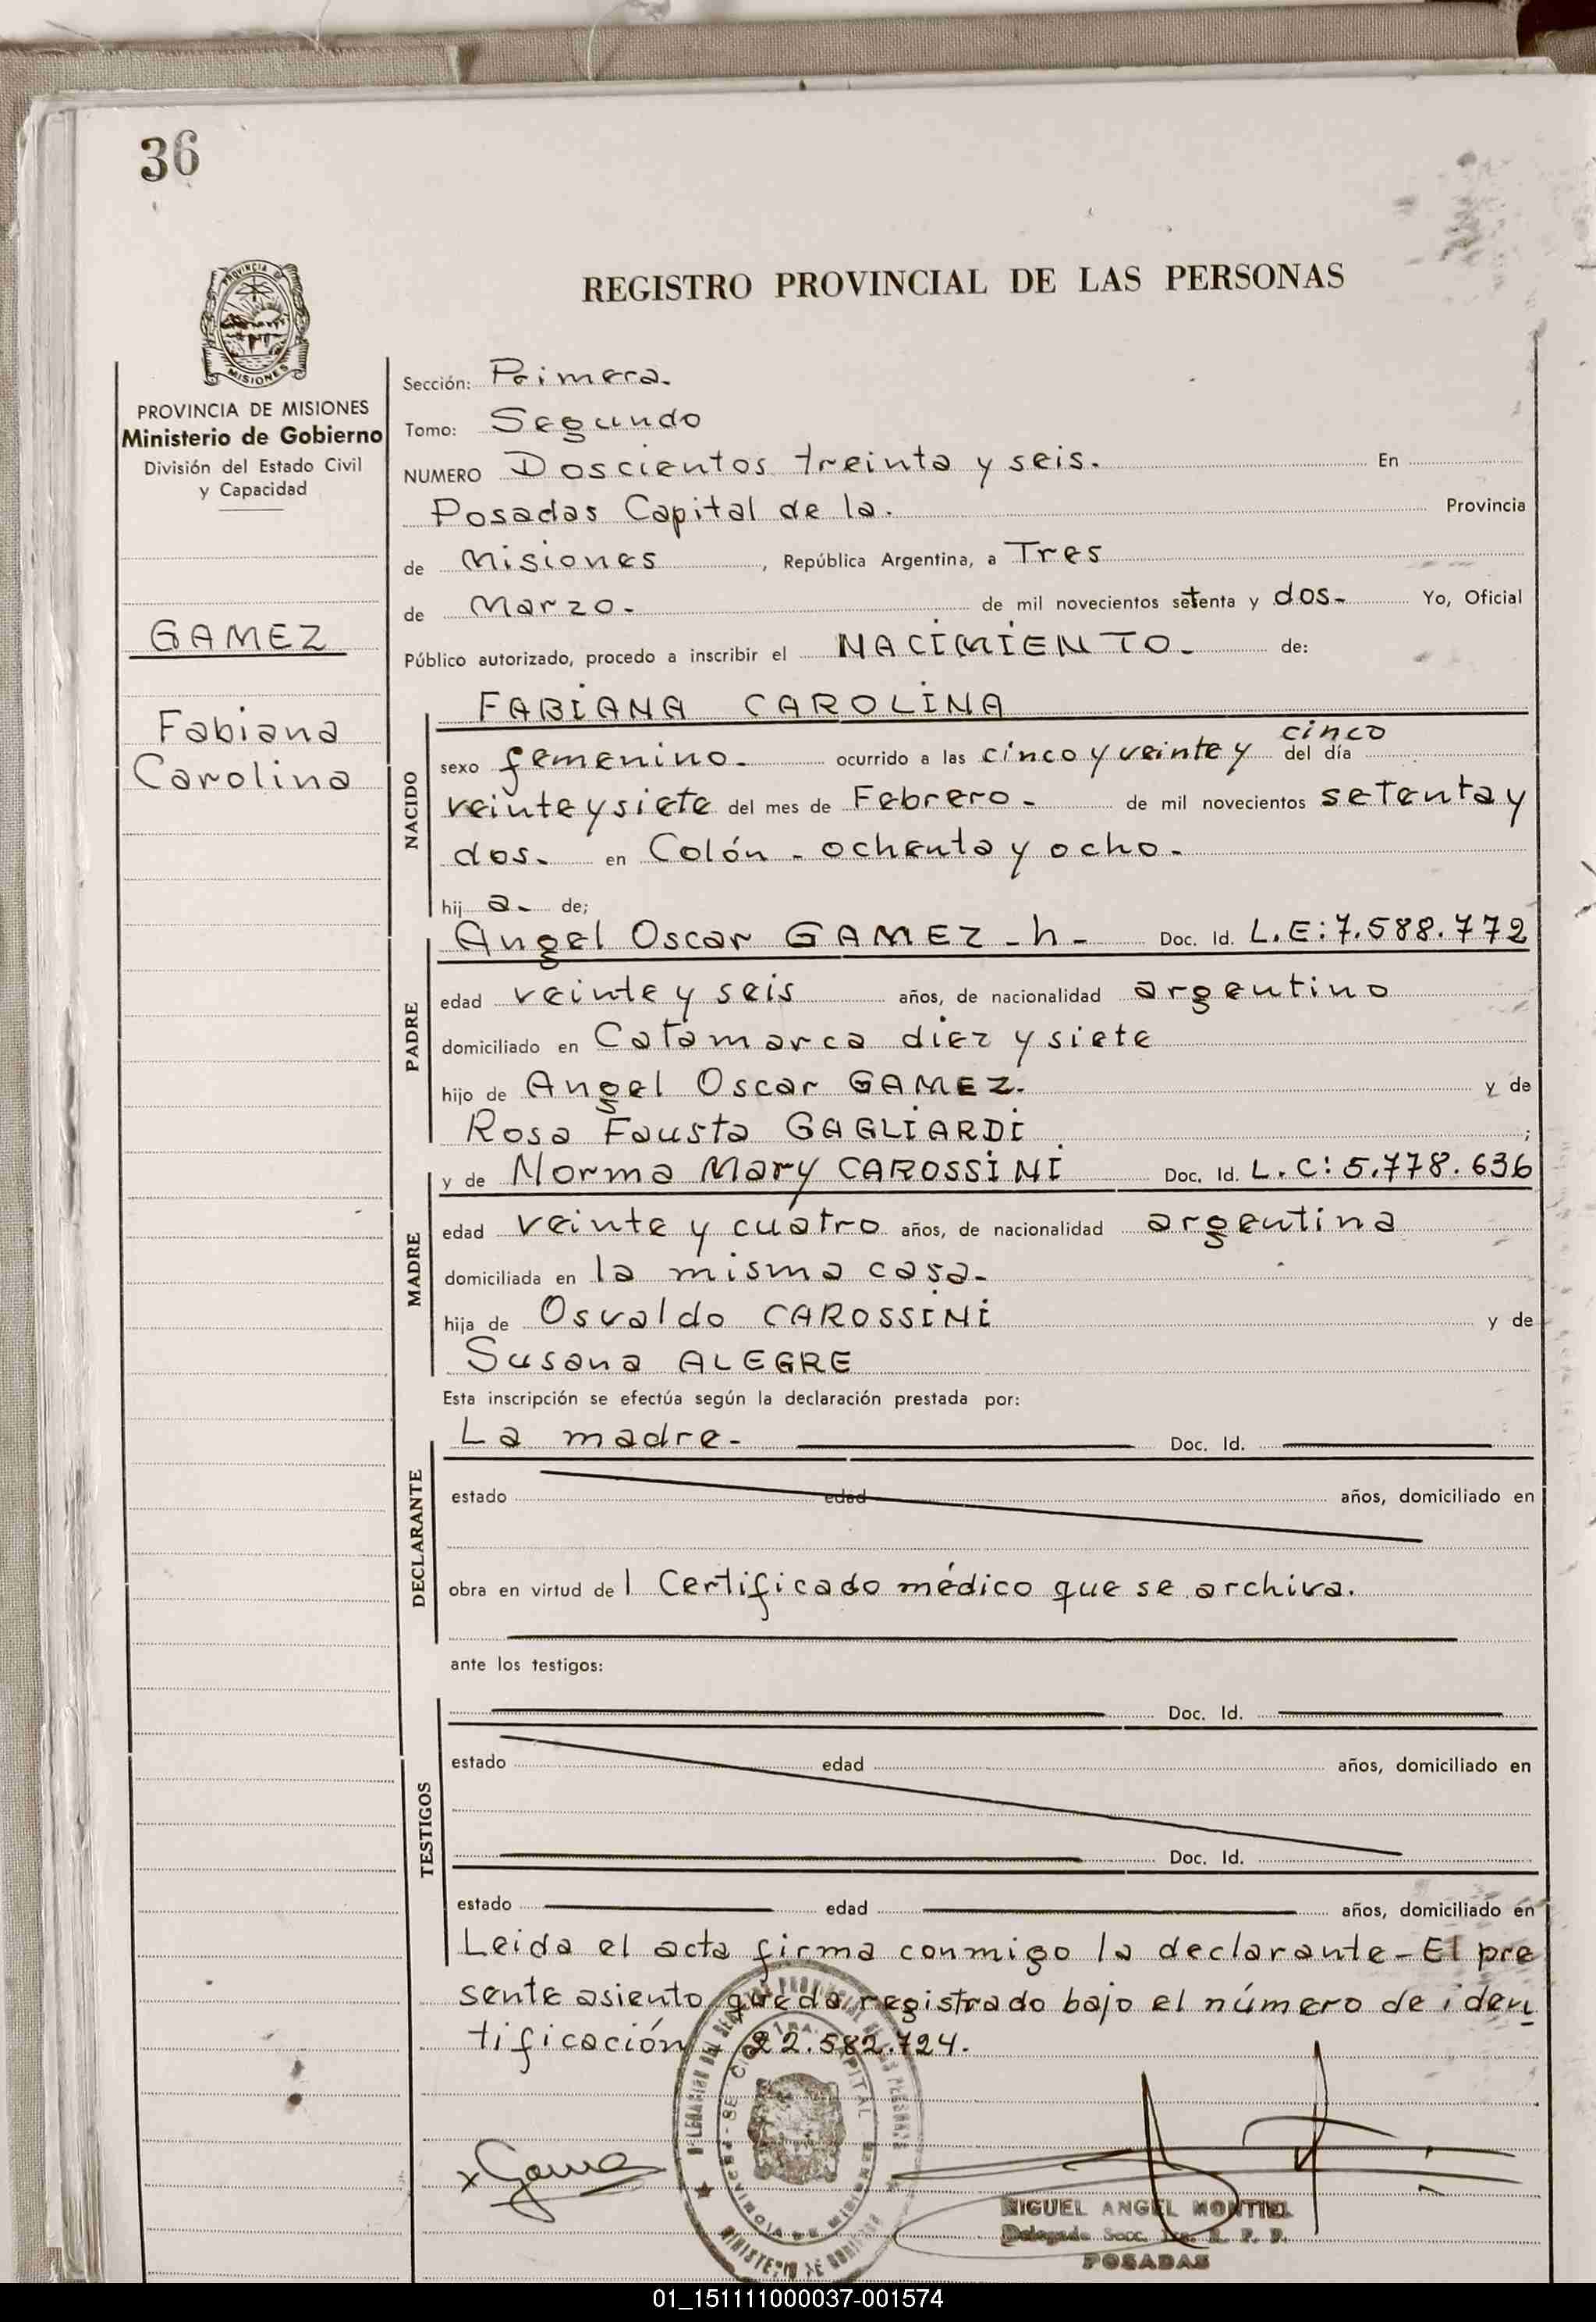 36
REGISTRO PROVINCIAL DE LAS PERSONAS
PROVINCIA DE MISIONES
Ministerio de Gobierno
División del Estado Civil
y Capacidad
GAMEZ
Fabiana
Carolina
Sección: Primera.
Tomo: Segundo
NUMERO Doscientos treinta y seis. En
Posadas Capital de la. Provincia
de Misiones, República Argentina, a Tres
de Marzo. de mil novecientos setenta y dos- Yo, Oficial
Público autorizado, procedo a inscribir el NACIMIENTO- de:
NACIDO
FABIANA CAROLINA
cinco
sexo femenino- ocurrido a las cinco y veinte y del día
veinte y siete del mes de Febrero- de mil novecientos setenta y
dos. en Colón - ochenta y ocho-
hij a- de;
PADRE
Angel Oscar GAMEZ -h- Doc. Id. L.E:7.588.772
edad veinte y seis años, de nacionalidad argentino
domiciliado en Catamarca diez y siete
hijo de Angel Oscar GAMEZ. y de
Rosa Fausta GAGLIARDI ;
MADRE
y de Norma Mary CAROSSINI Doc. Id. L.C: 5.778.636
edad veinte y cuatro años, de nacionalidad argentina
domiciliada en la misma casa-
hija de Osvaldo CAROSSINI y de
Susana ALEGRE
Esta inscripción se efectúa según la declaración prestada por:
DECLARANTE
La madre- Doc. Id.
estado edad años, domiciliado en
obra en virtud de l Certificado médico que se archiva.
ante los testigos:
TESTIGOS
Doc. Id.
estado edad años, domiciliado en
Doc. Id.
estado edad años, domiciliado en
Leida el acta firma conmigo la declarante - El pre
sente asiento queda registrado bajo el número de iden
tificación 22.582.724.
x Game
MIGUEL ANGEL MONTIEL
Delegado Secc. 1ra. R. P. P.
POSADAS
01_151111000037-001574